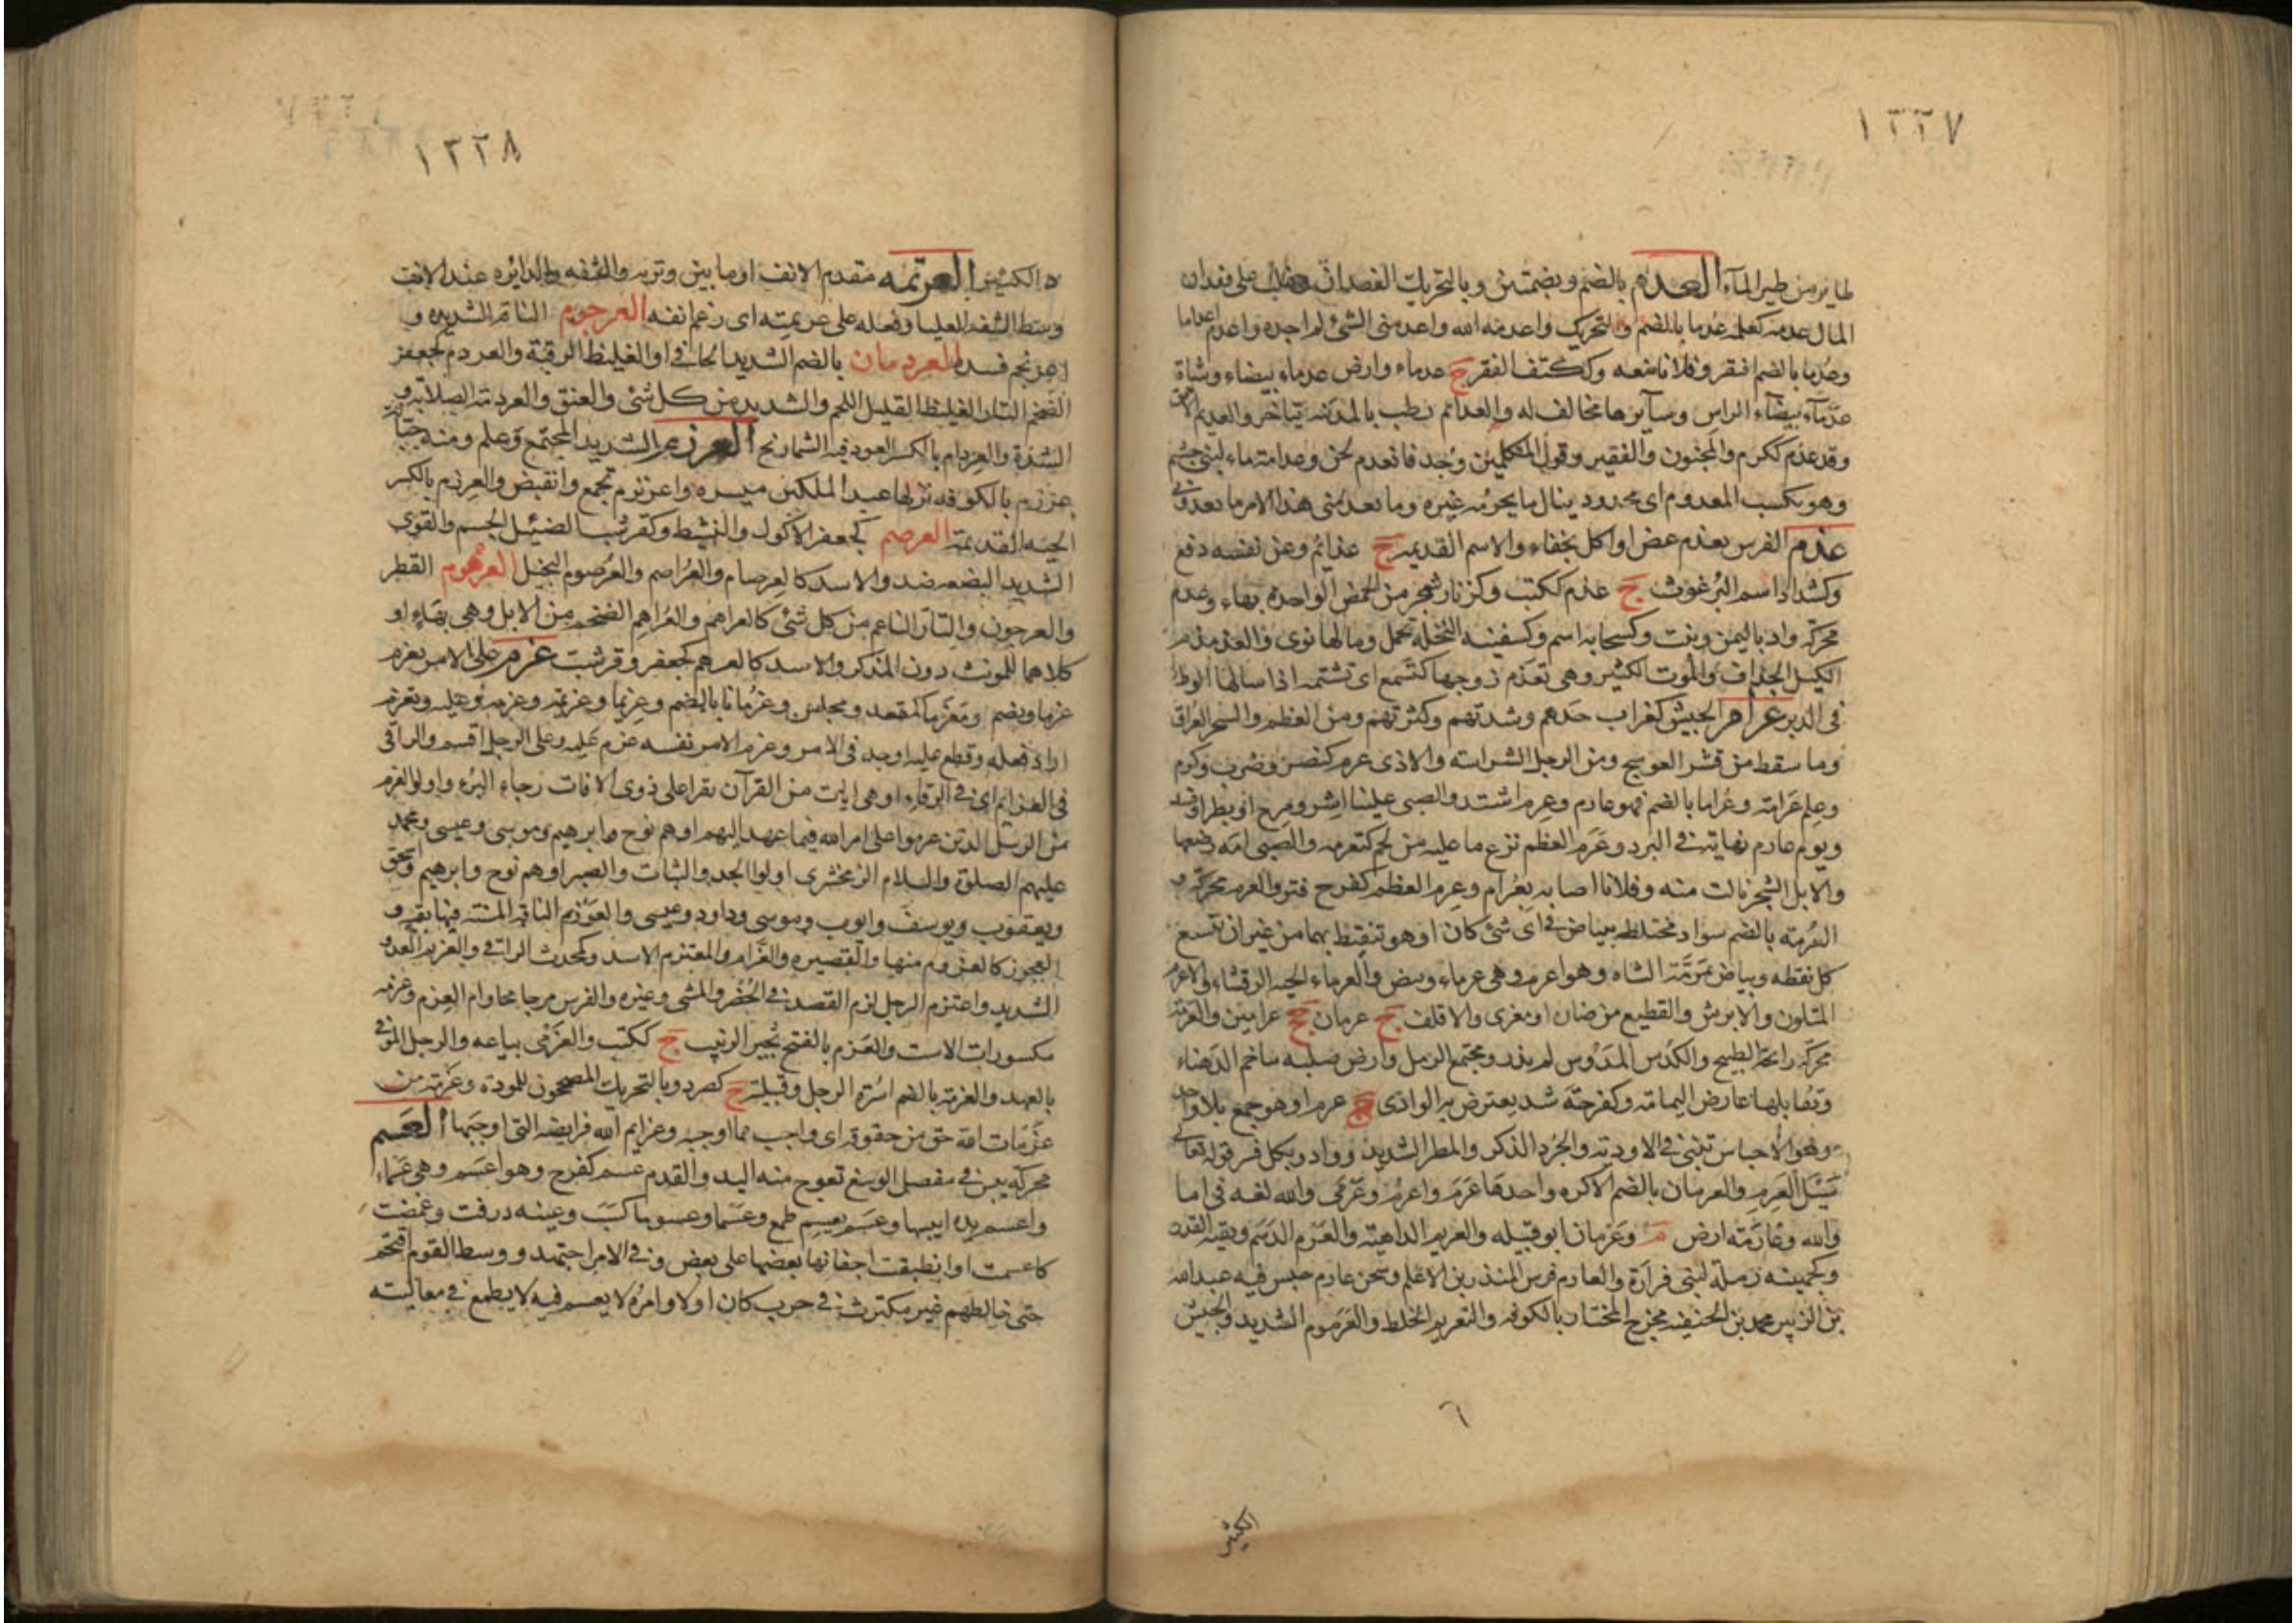 ١٢٢٧
طاير من طير المآء العدم بالضم وبضمتين وبالتحريك الفقدان وغلب على فقدان
المال عدمه كعلمه عدما بالضم والتحريك واعدمه الله واعدمنى الشئ لم اجده واعدم اعداما
وعدما بالضم افتقر وفلانا منعه وككتف الفقير ج عدماء وارض عدماء بيضاء وشاة
عدمآء بيضآء الراس وسآيرها مخالف له والعدائم رطب بالمدينه يتاخر والعديم الاحمق
وقد عدم ككرم والمجنون والفقير وقول المتكلمين وجد فانعدم لحن وعدامة ماء لبنى جشم
وهو يكسب المعدوم اى مجدود ينال ما يحرمه غيره وما يعدمنى هذا الامر ما يعدونى
عذم الفرس يعذم عض او اكل بجفاء والاسم العذيمه ج عذائم وعن نفسه دفع
وكشداد اسم البرغوث ج عذم ككتب وكزنار شجر من الحمض الواحدة بهاء وعذم
محركة واد باليمن ونبت وكسحابه اسم وكسفينه النخلة تحمل وما لها نوى والعذمذم
الكيل الجزاف والموت الكثير وهى تعذم زوجها كتسمع اى تشتمه اذا سالها الوطا
فى الدبر عرام الجيش كغراب حدهم وشدتهم وكثرتهم ومن العظم والشجر العراق
وما سقط من قشر العوسج ومن الرجل الشراسه والاذى عرم كنصر وضرب وكرم
وعلم عرامة وعراما بالضم فهو عارم وعرم اشتد والصبى علينا اشر ومرح او بطر او فسد
ويوم عارم نهاية فى البرد وعرم العظم نزع ما عليه من لحم كتعرمه والصبى امه رضعها
والابل الشجر نالت منه وفلانا اصابه بعرام وعرم العظم كفرح فتر والعرم محركة و
العرمة بالضم سواد مختلط ببياض فى اى شئ كان او هو تنقيط بهما من غير ان تتسع
كل نقطه وبياض بمرمة الشاه وهو اعرم وهى عرماء وبيض والعرماء الحيه الرقشاء والاعرم
المتلون والابرش والقطيع من ضان او معزى والاقلف ج عرمان جج عرامين والعرمة
محركة رائحة الطبيخ والكدس المدوس لم يذر ومجتمع الرمل وارض صلبه تتاخم الدهناء
وتقابلها عارض اليمامة وكفرحة سد يعترض به الوادى ج عرم او هو جمع بلا واحد
وهو الاحباس تبنى فى الاودية والجرد الذكر والمطر الشديد وواد وبكل فسر قوله تعالى
سيل العرم والعرمان بالضم الاكره واحدها عرم واعرم وعرمى والله لغه فى اما
والله وعارمة ارض م وعرمان ابو قبيله والعريم الداهية والعرم الدسم وبقية القدر
وكجهينه رملة لبنى فزارة والعارم فرس المنذر بن الاعلم وسجن عارم حبس فيه عبد الله
بن الزبير محمد بن الحنفيه فخرج المختار بالكوفه والتعريم الخلط والعرموم الشديد والجيش
٦
الكثير
١٢٢٨
الكثير العرتمه مقدم الانف او ما بين وترته والشفه والدائره عند الانف
وسط الشفه العليا وفعله على عرتمته اى رغم انفه العرجوم الناقة الشديده و
اعرنجم فسد العردمان بالضم الشديد الجافى او الغليظ الرقبة والعردم كجعفر
الضخم التار الغليظ القليل اللحم والشديد من كل شئ والعنق والعردمة الصلابة و
الشدة والعردام بالكسر العود فيه الشماريخ العرزم الشديد المجتمع وعلم ومنه جبانة
عرزم بالكوفه نزلها عبد الملك بن ميسره واعرنزم تجمع وانقبض والعرزم بالكسر
الحيه القديمة العرصم كجعفر الاكول والنشيط وكقرشب الضئيل الجسم والقوى
الشديد البضعه ضد والاسد كالعرصام والعراصم والعرصوم البخيل العرهوم القطر
والعرجون والتار الناعم من كل شئ كالعراهم والعراهم الضخم من الابل وهى بهاء او
كلاهما للمونث دون المذكر والاسد كالعرهم كجعفر وقرشب عزم على الامر يعزم
عزما ويضم ومعزما كمقعد ومجلس وعزمانا بالضم وعزيما وعزيمة وعزمه وعليه وتعزم
اراد فعله وقطع عليه او جد فى الامر وعزم الامر نفسه عزم عليه وعلى الرجل اقسم والراقى
فى العزائم اى فى الرقاء او هى ايات من القرآن تقرا على ذوى الافات رجاء البرء واولوا العزم
من الرسل الذين عزموا على امر الله فيما عهد اليهم او هم نوح وابرهيم وموسى وعيسى ومحمد
عليهم الصلوة والسلام الزمخشرى اولوا الجد والثبات والصبر او هم نوح وابرهيم واسحق
ويعقوب ويوسف وايوب وموسى وداود وعيسى والعوزم الناقة المسنة فيها بقية و
العجوز كالعزوم منها والقصيره والعزام والمعتزم الاسد وكمحدث الراقى والعزيم العدو
الشديد واعتزم الرجل لزم القصد فى الحضر والمشى وغيره والفرس مر جامحا وام العزم وعزمه
مكسورات الاست والعزم بالفتح ثجير الزبيب ج ككتب والعزمى بياعه والرجل الموفى
بالعهد والعزمة بالضم اسرة الرجل وقبيلته ج كصرد وبالتحريك المصححون للمودة وعزمة من
عزمات الله حق من حقوقه اى واجب مما اوجبه وعزايم الله فرايضه التى اوجبها العسم
محركة يبس فى مفصل الرسغ تعوج منه اليد والقدم عسم كفرح وهو اعسم وهى عسماء
واعسم يده ايبسها وعسم يعسم طمع وعسما وعسوما كسب وعينه ذرفت وغمضت
كاعسمت او انطبقت اجفانها بعضها على بعض وفى الامر اجتهد ووسط القوم اقتحم
حتى خالطهم غير مكترث فى حرب كان او لا وامره لا يعسم فيه لا يطمع فى مغالبته